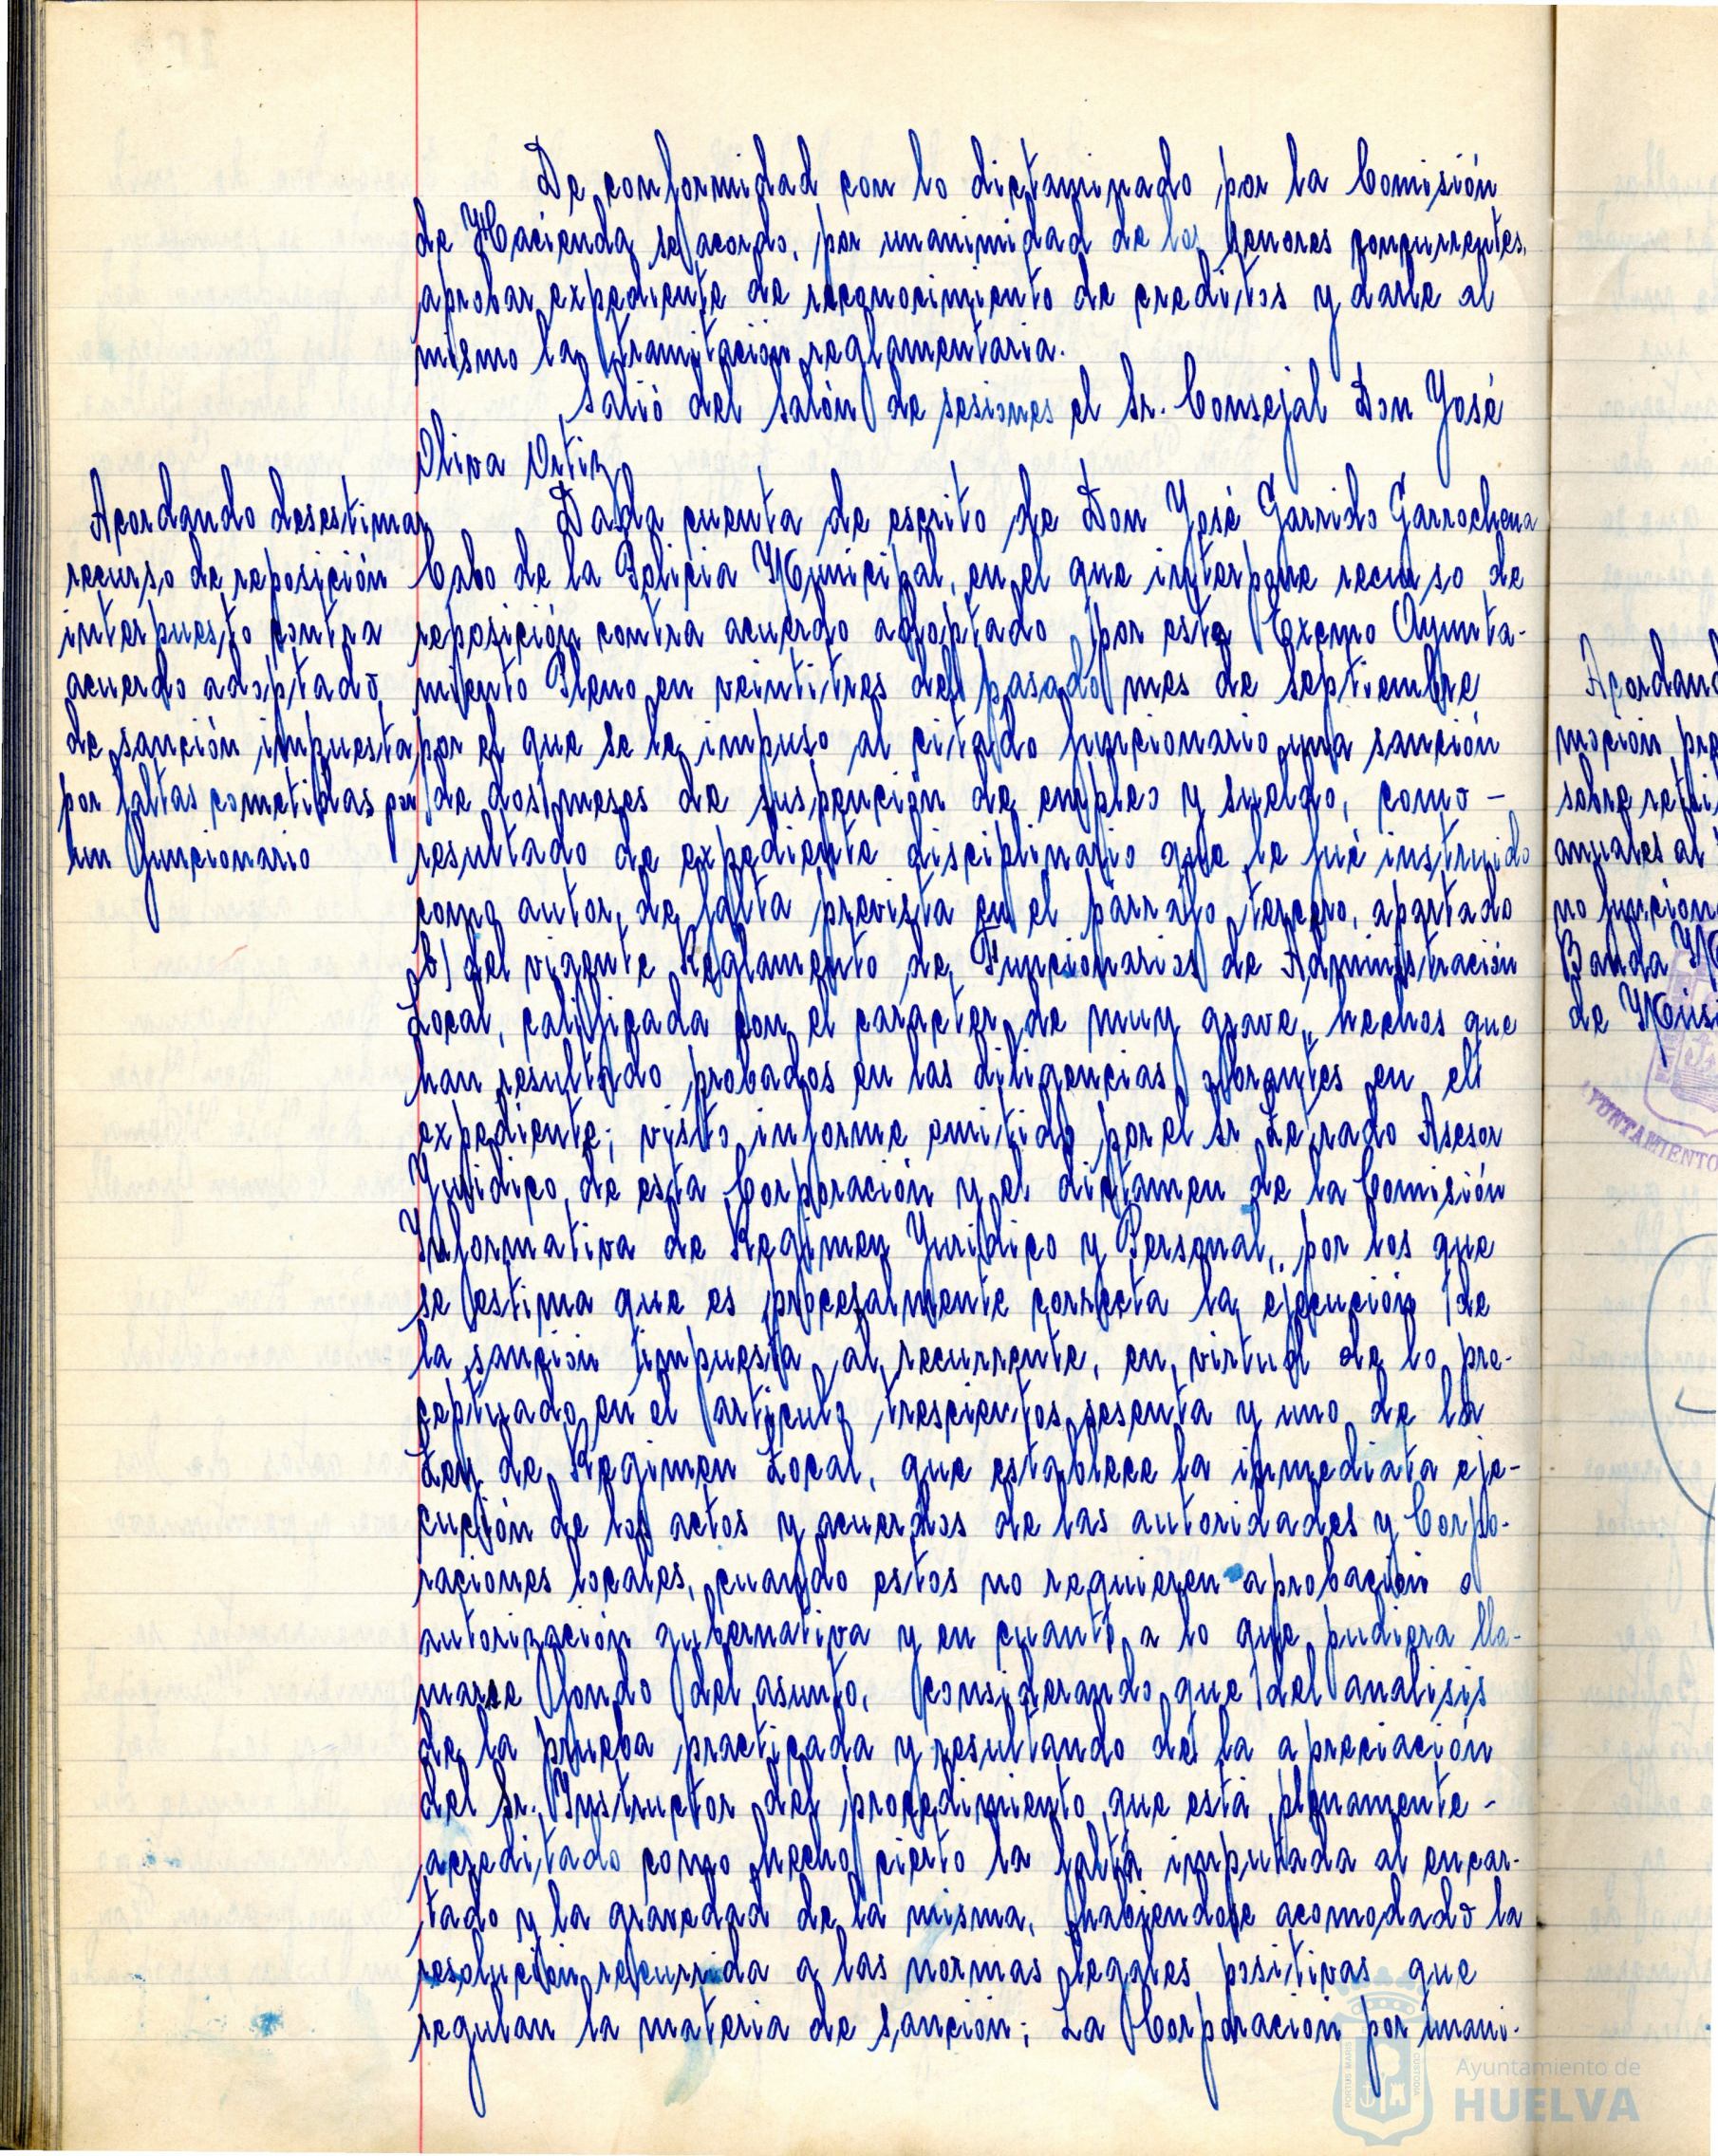 De conformidad con lo dictaminado por la Comisión
de Hacienda se acordo, por unanimidad de los señores concurrentes,
aprobar expediente de reconocimiento de creditos y darle al
mismo la tramitación reglamentaria.
Salió del salón de sesiones el Sr. Consejal Don José
Oliva Ortiz
Acordando desestimar
recurso de reposición
interpuesto contra
acuerdo adoptado
de sanción impuesta
por faltas cometidas por
un Funcionario
Dada cuenta de escrito de Don José Garrido Garrochena
Cabo de la Policia Municipal, en el que interpone recurso de
reposición contra acuerdo adoptado por este Excmo Ayunta-
miento Pleno en veintitres del pasado mes de septiembre
por el que se le impuso al citado funcionario una sanción
de dos meses de suspención de empleo y sueldo, como -
resultado de expediente disciplinario que le fué instruido
como autor, de falta prevista en el párrafo tercero, apartado
b) del vigente Reglamento de Funcionarios de Administración
Local, calificada con el caracter de muy grave, hechos que
han resultado probados en las diligencias obrantes en el
expediente; visto informe emitido por el Sr Letrado Asesor
Juridico de esta Corporación y el dictamen de la Comisión
Informativa de Regimen Juridico y Personal, por los que
se estima que es procesalmente correcta la ejecución de
la sanción impuesta al recurrente, en virtud de lo pre-
ceptuado en el articulo trescientos sesenta y uno de la
Ley de Regimen Local, que establece la inmediata eje-
cución de los actos y acuerdos de las autoridades y Corpo-
raciones locales, cuando estos no requieren aprobación o
autorización gubernativa y en cuanto a lo que pudiera lla-
marse fondo del asunto, considerando que del analisis
de la prueba practicada y resultando de la apreciación
del Sr. Instructor del procedimiento que está plenamente -
acreditado como hecho cierto la falta imputada al encar-
tado y la gravedad de la misma, habiendose acomodado la
resolución recurrida a las normas legales positivas que
regulan la materia de sanción; La Corporación por unani-
Acordand
moción pre
sobre retri
anuales al
no funcion
Banda M
de Músi
AYUNTAMIENTO
Ayuntamiento de
HUELVA